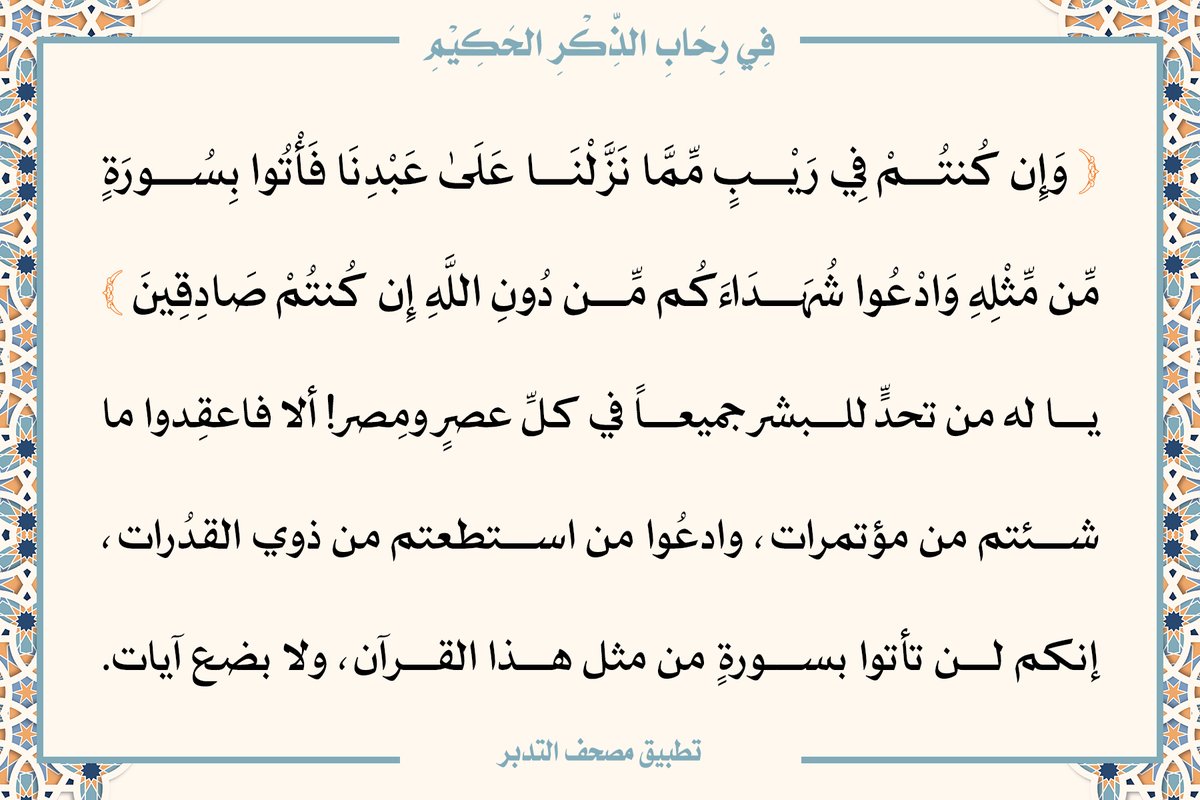 فِي رِحَابِ الذِّكْرِ الحَكِيْمِ
﴿ وَإِن كُنتُمْ فِي رَيْبٍ مِّمَّا نَزَّلْنَا عَلَىٰ عَبْدِنَا فَأْتُوا بِسُورَةٍ
مِّن مِّثْلِهِ وَادْعُوا شُهَدَاءَكُم مِّن دُونِ اللَّهِ إِن كُنتُمْ صَادِقِينَ ﴾
يا له من تحدٍّ للبشر جميعاً في كلِّ عصرٍ ومِصر! ألا فاعقِدوا ما
شئتم من مؤتمرات، وادعُوا من استطعتم من ذوي القدُرات،
إنكم لن تأتوا بسورةٍ من مثل هذا القرآن، ولا بضع آيات.
تطبيق مصحف التدبر